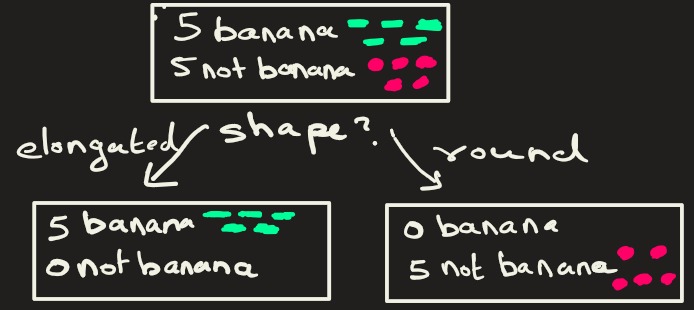 5 banana
5 not banana
elongated
shape?
round
5 banana
0 not banana
0 banana
5 not banana